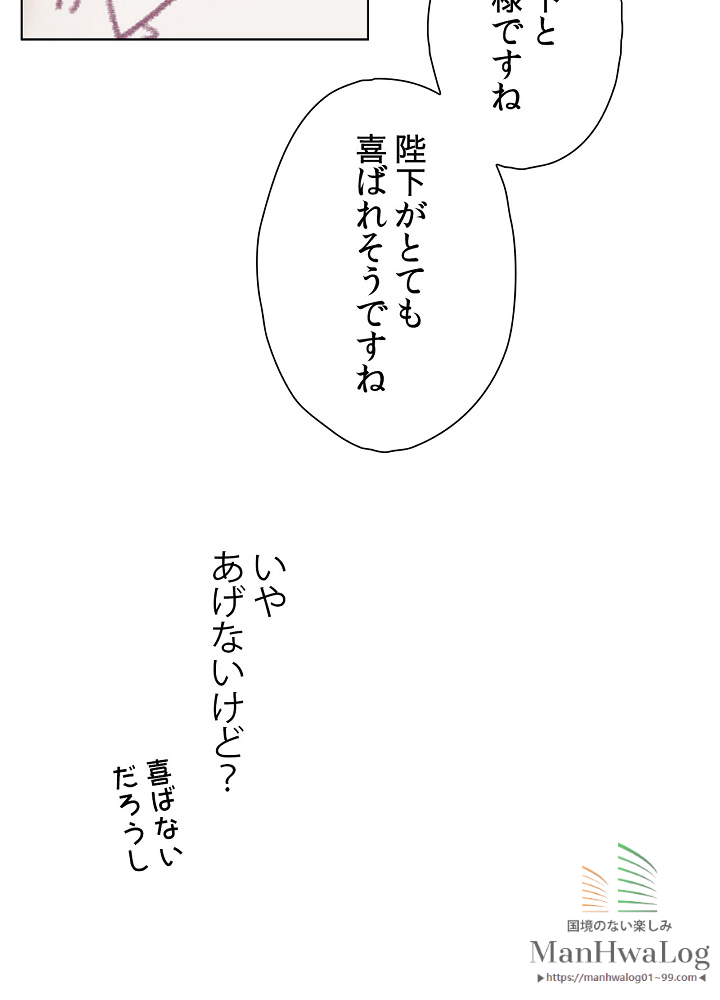 下と
様ですね
陛下がとても
喜ばれそうですね
いや
あげないけど？
喜ばない
だろうし
国境のない楽しみ
ManHwaLog
▶https://manhwalog01~99.com◀